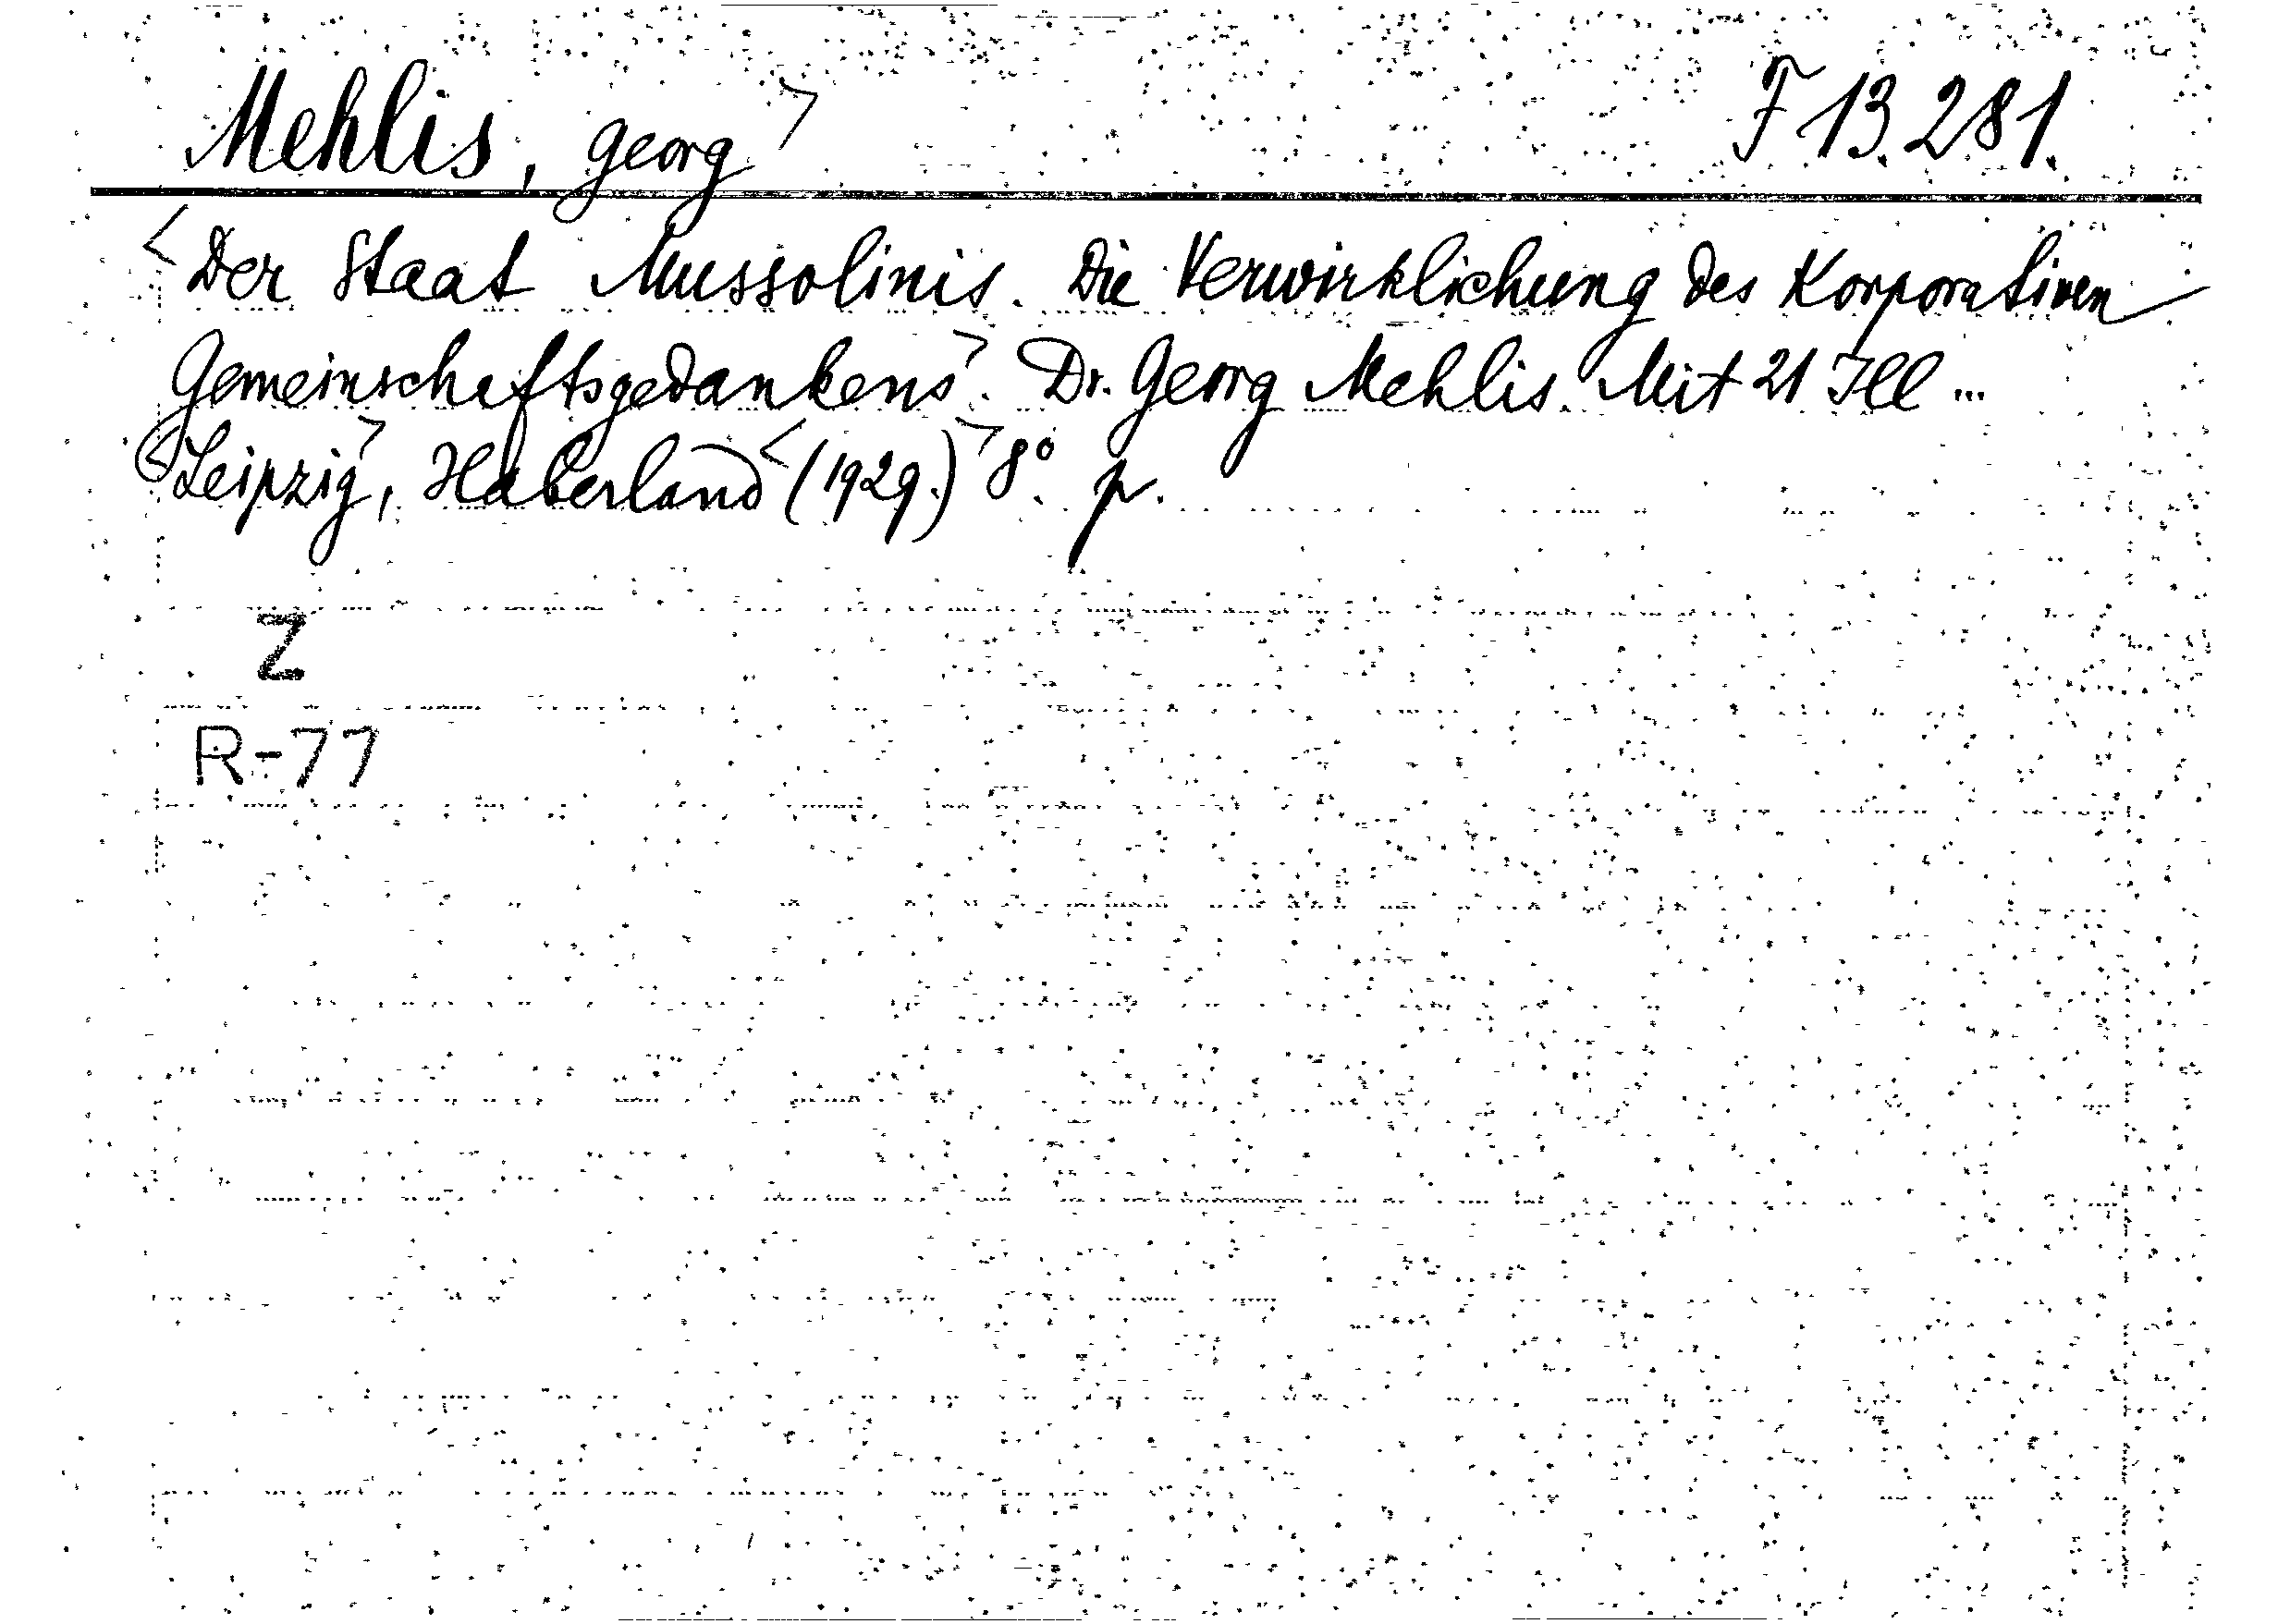 Mehlis, Georg> F 13.281.
<Der Staat Mussolinis. Die Verwirklichung des Korporativen
Gemeinschaftsgedankens>. Dr. Georg Mehlis. Mit 21 Ill...
<Leipzig>, Haberland <(1929.)> 8°. p.
Z
R-77